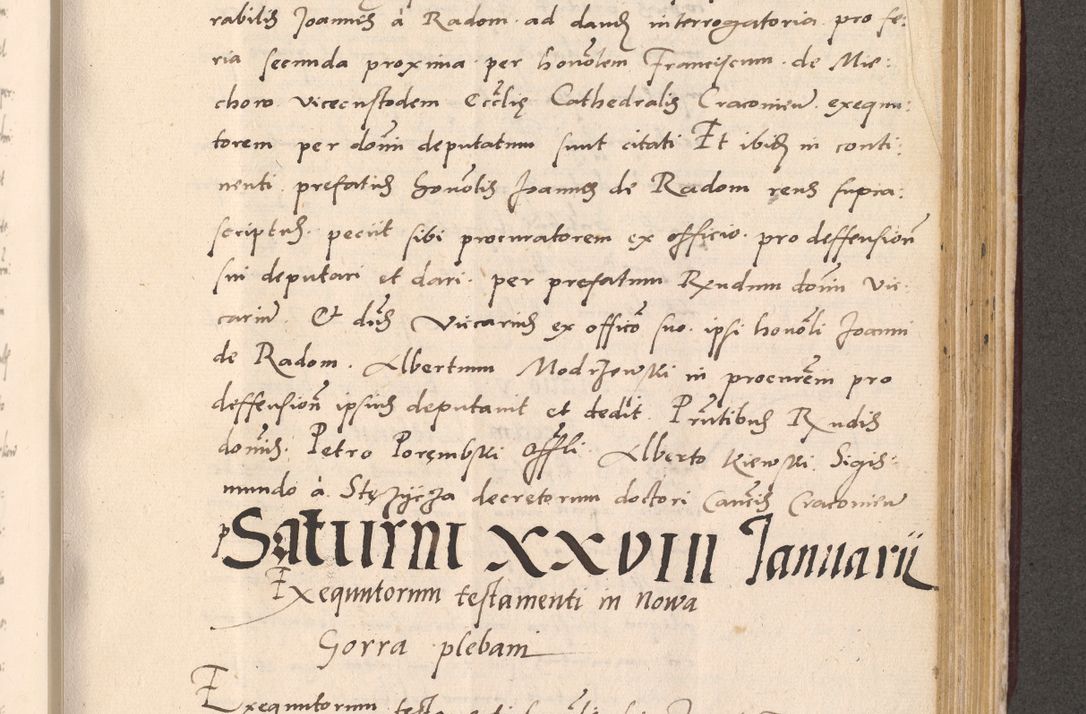 rabilis Joannes à Radom ad dandum interrogatoria pro fe:
ria secunda proxima per honorabilem Franciscum de Mie:
chow vicecustodem Ecclesię Cathedralis Cracovien exequu:
torem per dominum deputatum sunt citati Et ibidem in conti:
nenti prefatus honorabilis Joannes de Radom reus supra:
scriptus peciit sibi procuratorem ex officio pro deffensione
sui deputari et dari per prefatum Rndum dominum Vic:
carium Et dominus Viccarius ex officio suo ipsi honorabili Joanni
de Radom Albertum Modrzewski in procuratorem pro
deffensione ipsius deputavit et dedit Presentibus Rndis
dominis Petro Porembski Offli Alberto Kiewski Sigis:
mundo à Stęzycza decretorum doctori Canonicis Cracovien
Saturni XXVIII Januarii
Exequutorum testamenti in Nowa
Gorra plebani
Exequutorum